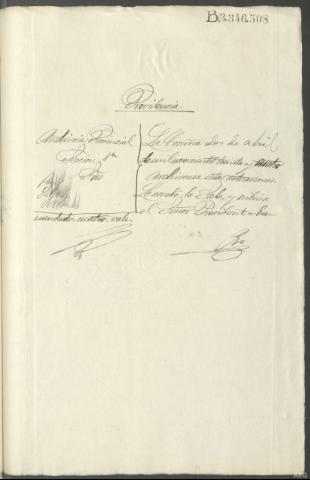 B3.346.308
Providencia
Audiencia Provincial
Sección 1ª
Sres
La Coruña dos de abril
de mil novecientos treinta y
Archívense estas actuaciones
Lo acordó la Sala, y rubrica
el Señor Presidente
enmendado: cuatro: vale.